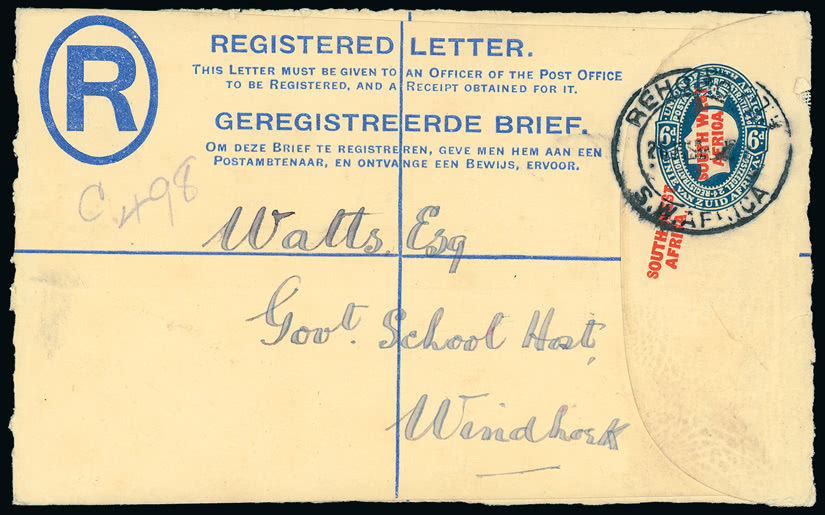 R
REGISTERED LETTER.
THIS LETTER MUST BE GIVEN TO AN OFFICER OF THE POST OFFICE
TO BE REGISTERED, AND A RECEIPT OBTAINED FOR IT.
GEREGISTREERDE BRIEF.
OM DEZE BRIEF TE REGISTREREN, GEVE MEN HEM AAN EEN
POSTAMBTENAAR, EN ONTVANGE EEN BEWIJS, ERVOOR.
C 498
Watts, Esq
Govt. School Host,
Windhoek
6d 6d
ZUID AFRIKA
SOUTH WEST
AFRICA
S.W. AFRICA
SOUTH WEST
AFRICA